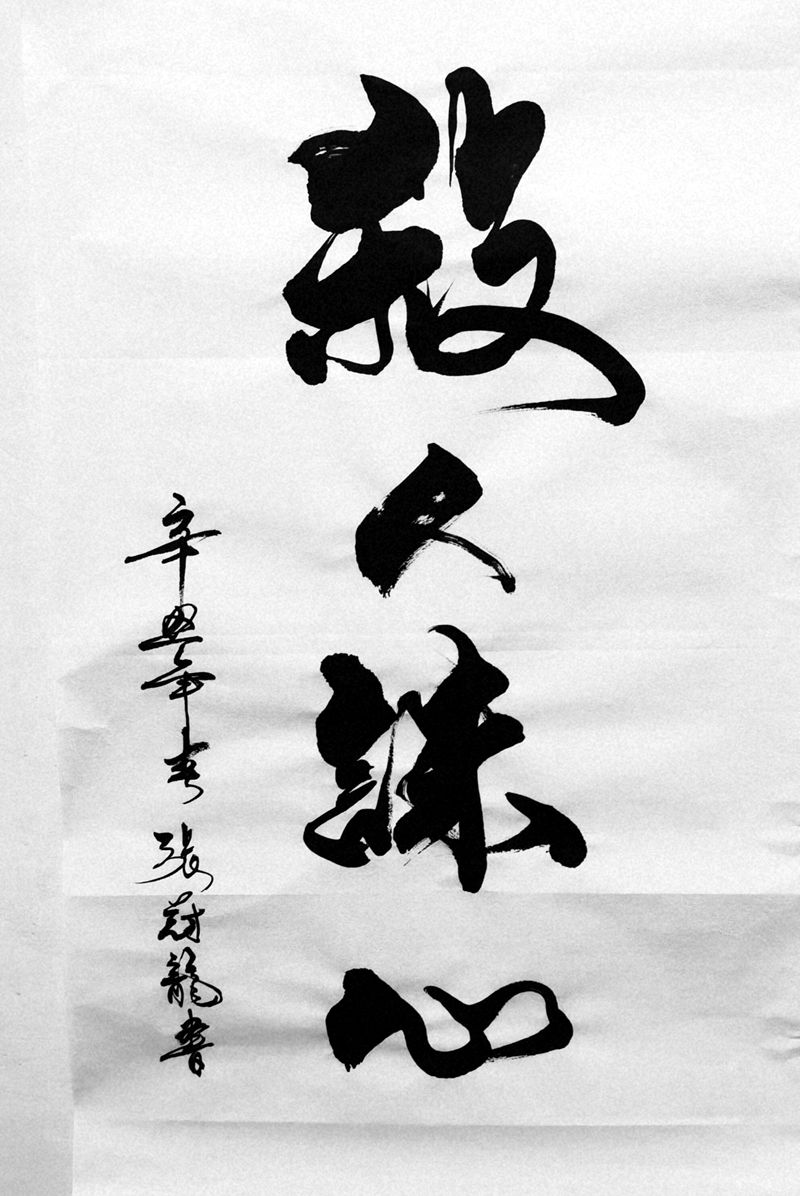 殺人誅心
辛丑年春 張龍書